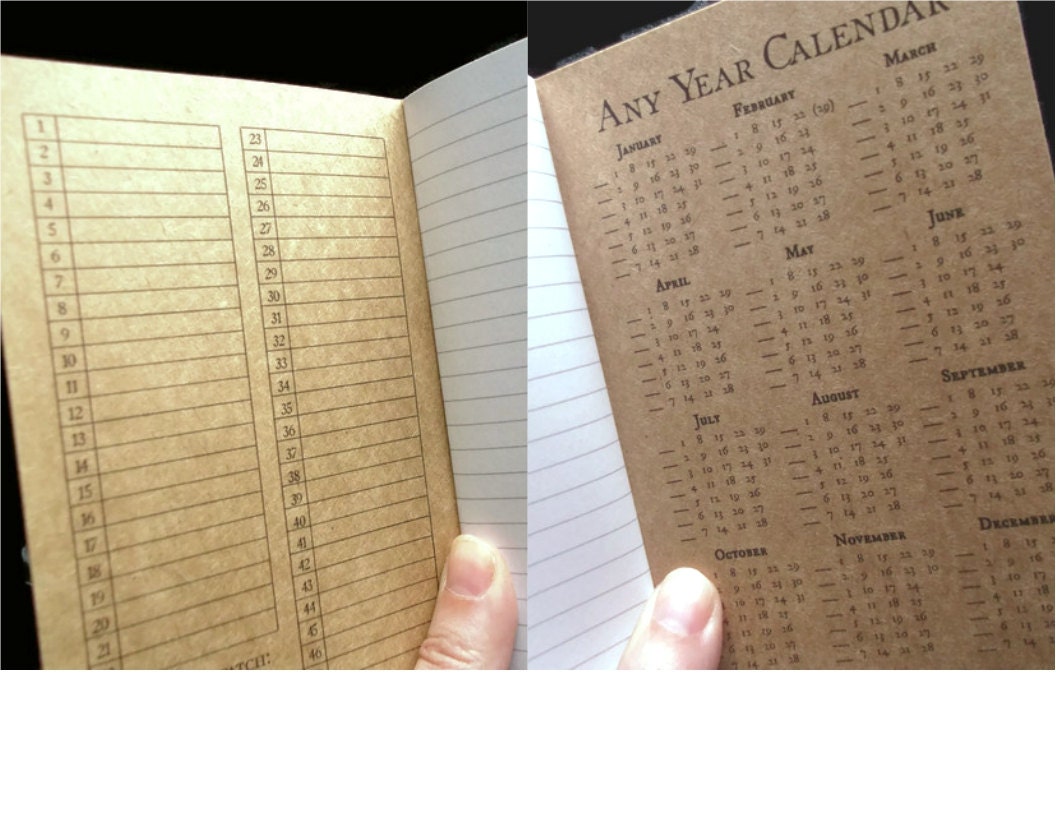 1
2
3
4
5
6
7
8
9
10
11
12
13
14
15
16
17
18
19
20
21
ATCH:
23
24
25
26
27
28
29
30
31
32
33
34
35
36
37
38
39
40
41
42
43
44
45
46
ANY YEAR CALENDAR
JANUARY
1 8 15 22 29
2 9 16 23 30
3 10 17 24 31
4 11 18 25
5 12 19 26
6 13 20 27
7 14 21 28
FEBRUARY
1 8 15 22 (29)
2 9 16 23
3 10 17 24
4 11 18 25
5 12 19 26
6 13 20 27
7 14 21 28
MARCH
1 8 15 22 29
2 9 16 23 30
3 10 17 24 31
4 11 18 25
5 12 19 26
6 13 20 27
7 14 21 28
APRIL
1 8 15 22 29
2 9 16 23 30
3 10 17 24
4 11 18 25
5 12 19 26
6 13 20 27
7 14 21 28
MAY
1 8 15 22 29
2 9 16 23 30
3 10 17 24 31
4 11 18 25
5 12 19 26
6 13 20 27
7 14 21 28
JUNE
1 8 15 22 29
2 9 16 23 30
3 10 17 24
4 11 18 25
5 12 19 26
6 13 20 27
7 14 21 28
JULY
1 8 15 22 29
2 9 16 23 30
3 10 17 24 31
4 11 18 25
5 12 19 26
6 13 20 27
7 14 21 28
AUGUST
1 8 15 22 29
2 9 16 23 30
3 10 17 24 31
4 11 18 25
5 12 19 26
6 13 20 27
7 14 21 28
SEPTEMBER
1 8 15 22
2 9 16 23
3 10 17 24
4 11 18 25
5 12 19 26
6 13 20 27
7 14 21 28
OCTOBER
1 8 15 22 29
2 9 16 23 30
10 17 24 31
11 18 25
12 19 26
13 20 27
14 21 28
NOVEMBER
1 8 15 22 29
2 9 16 23 30
3 10 17 24
4 11 18 25
5 12 19 26
6 13 20 27
7 14 21 28
DECEMBER
1 8 15
2 9 16
3 10 17
4 11 18
5 12 19
6 13 20
7 14 21